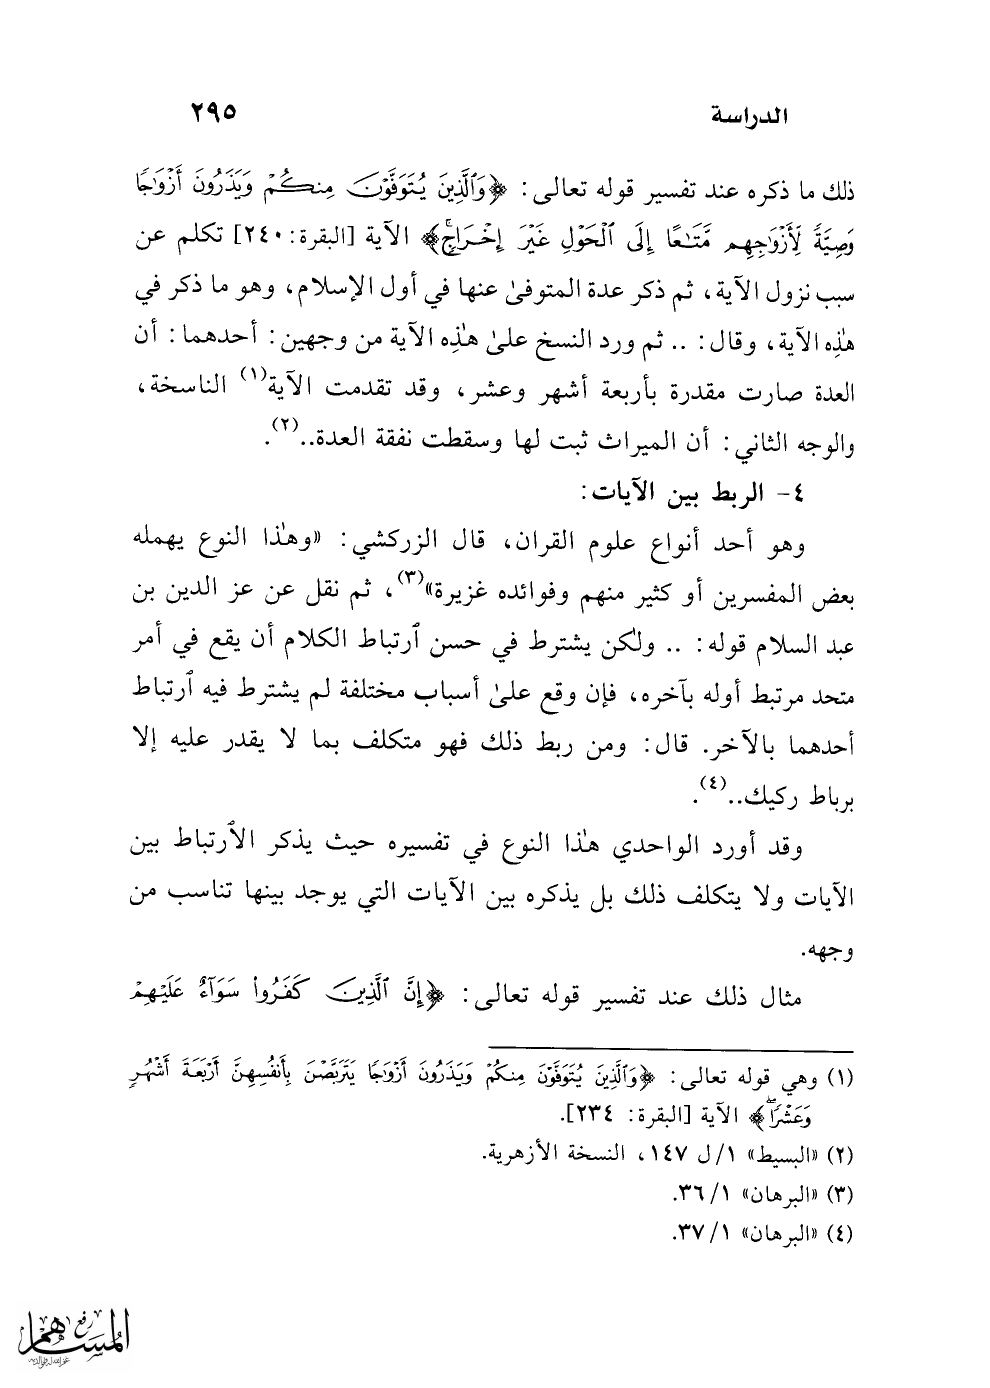 الدراسة ٢٩٥
ذلك ما ذكره عند تفسير قوله تعالى: ﴿وَٱلَّذِينَ يُتَوَفَّوۡنَ مِنكُمۡ وَيَذَرُونَ أَزۡوَٰجٗا
وَصِيَّةٗ لِّأَزۡوَٰجِهِم مَّتَٰعًا إِلَى ٱلۡحَوۡلِ غَيۡرَ إِخۡرَاجٖۚ﴾ الآية [البقرة: ٢٤٠] تكلم عن
سبب نزول الآية، ثم ذكر عدة المتوفىٰ عنها في أول الإسلام، وهو ما ذكر في
هٰذِه الآية، وقال: .. ثم ورد النسخ علىٰ هٰذِه الآية من وجهين: أحدهما: أن
العدة صارت مقدرة بأربعة أشهر وعشر، وقد تقدمت الآية(١) الناسخة،
والوجه الثاني: أن الميراث ثبت لها وسقطت نفقة العدة..(٢).
٤- الربط بين الآيات:
وهو أحد أنواع علوم القران، قال الزركشي: «وهٰذا النوع يهمله
بعض المفسرين أو كثير منهم وفوائده غزيرة»(٣)، ثم نقل عن عز الدين بن
عبد السلام قوله: .. ولٰكن يشترط في حسن ٱرتباط الكلام أن يقع في أمر
متحد مرتبط أوله بآخره، فإن وقع علىٰ أسباب مختلفة لم يشترط فيه ٱرتباط
أحدهما بالآخر. قال: ومن ربط ذلك فهو متكلف بما لا يقدر عليه إلا
برباط ركيك..(٤).
وقد أورد الواحدي هٰذا النوع في تفسيره حيث يذكر الٱرتباط بين
الآيات ولا يتكلف ذلك بل يذكره بين الآيات التي يوجد بينها تناسب من
وجهه.
مثال ذلك عند تفسير قوله تعالى: ﴿إِنَّ ٱلَّذِينَ كَفَرُواْ سَوَآءٌ عَلَيۡهِمۡ
(١) وهي قوله تعالى: ﴿وَٱلَّذِينَ يُتَوَفَّوۡنَ مِنكُمۡ وَيَذَرُونَ أَزۡوَٰجٗا يَتَرَبَّصۡنَ بِأَنفُسِهِنَّ أَرۡبَعَةَ أَشۡهُرٖ
وَعَشۡرٗاۖ﴾ الآية [البقرة: ٢٣٤].
(٢) «البسيط» ١/ ل ١٤٧، النسخة الأزهرية.
(٣) «البرهان» ١/ ٣٦.
(٤) «البرهان» ١/ ٣٧.